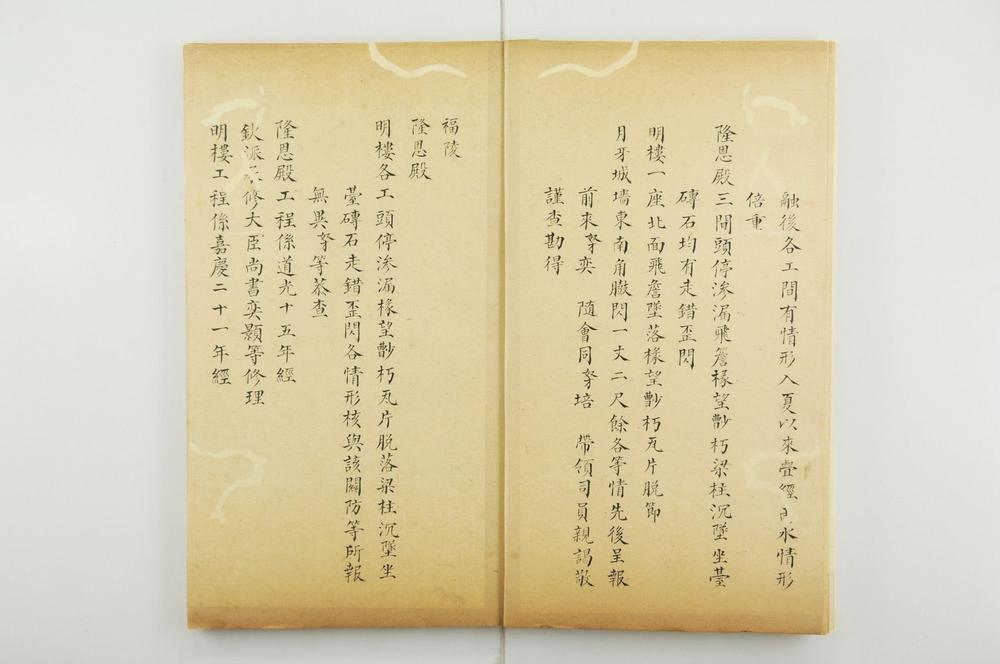 融後各工間有情形入夏以來疊經水情形
倍重
隆恩殿三間頭停滲漏飛簷椽望䵝朽梁柱沉墜坐臺
磚石均有走錯歪閃
明樓一座北面飛簷墜落椽望䵝朽瓦片脫節
月牙城墻東南角臌閃一丈二尺餘各等情先後呈報
前來奴才奕 隨會同奴才培 帶領司員親詣敬
謹查勘得
福陵
隆恩殿
明樓各工頭停滲漏椽望䵝朽瓦片脫落梁柱沉墜坐
臺磚石走錯歪閃各情形核與該關防等所報
無異奴才等恭查
隆恩殿工程係道光十五年經
欽派承修大臣尚書奕顥等修理
明樓工程係嘉慶二十一年經